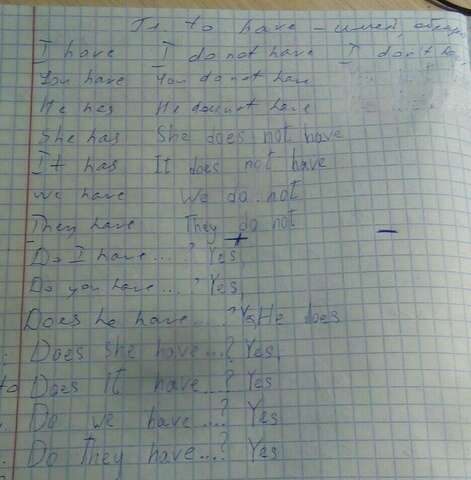 Гл. to have - имей,
I have I do not have I don't
You have You do not have
He has He does not have
She has She does not have
It has It does not have
We have We do not
They have They do not
+ -
Do I have....? Yes
Do you have....? Yes,
Does he have.....? Yes He does
Does she have....? Yes,
to Does it have....? Yes
Do we have....? Yes
Do They have....? Yes